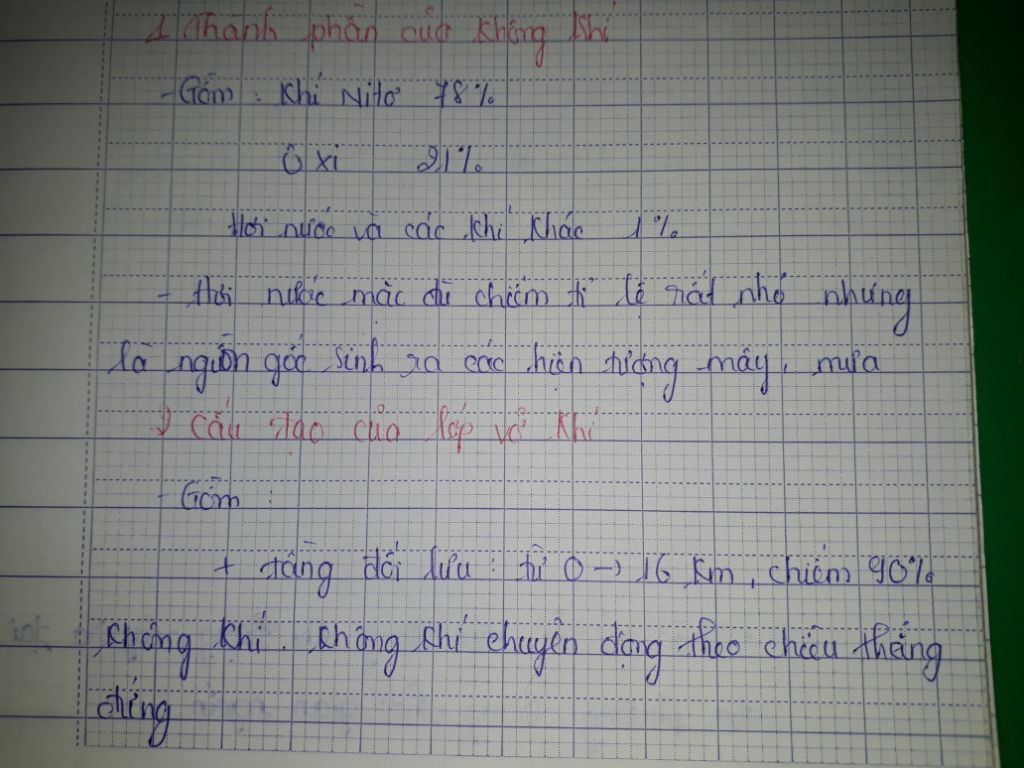 1 Thành phần của không khí
- Gồm : Khí Nitơ 78%
Ô xi 21%
Hơi nước và các khí khác 1%
- Hơi nước mặc dù chiếm tỉ lệ rất nhỏ nhưng
là nguồn gốc sinh ra các hiện tượng mây, mưa
2 Cấu tạo của lớp vỏ khí
- Gồm :
+ tầng đối lưu : từ 0 → 16 km, chiếm 90%
không khí. Không khí chuyển động theo chiều thẳng
đứng